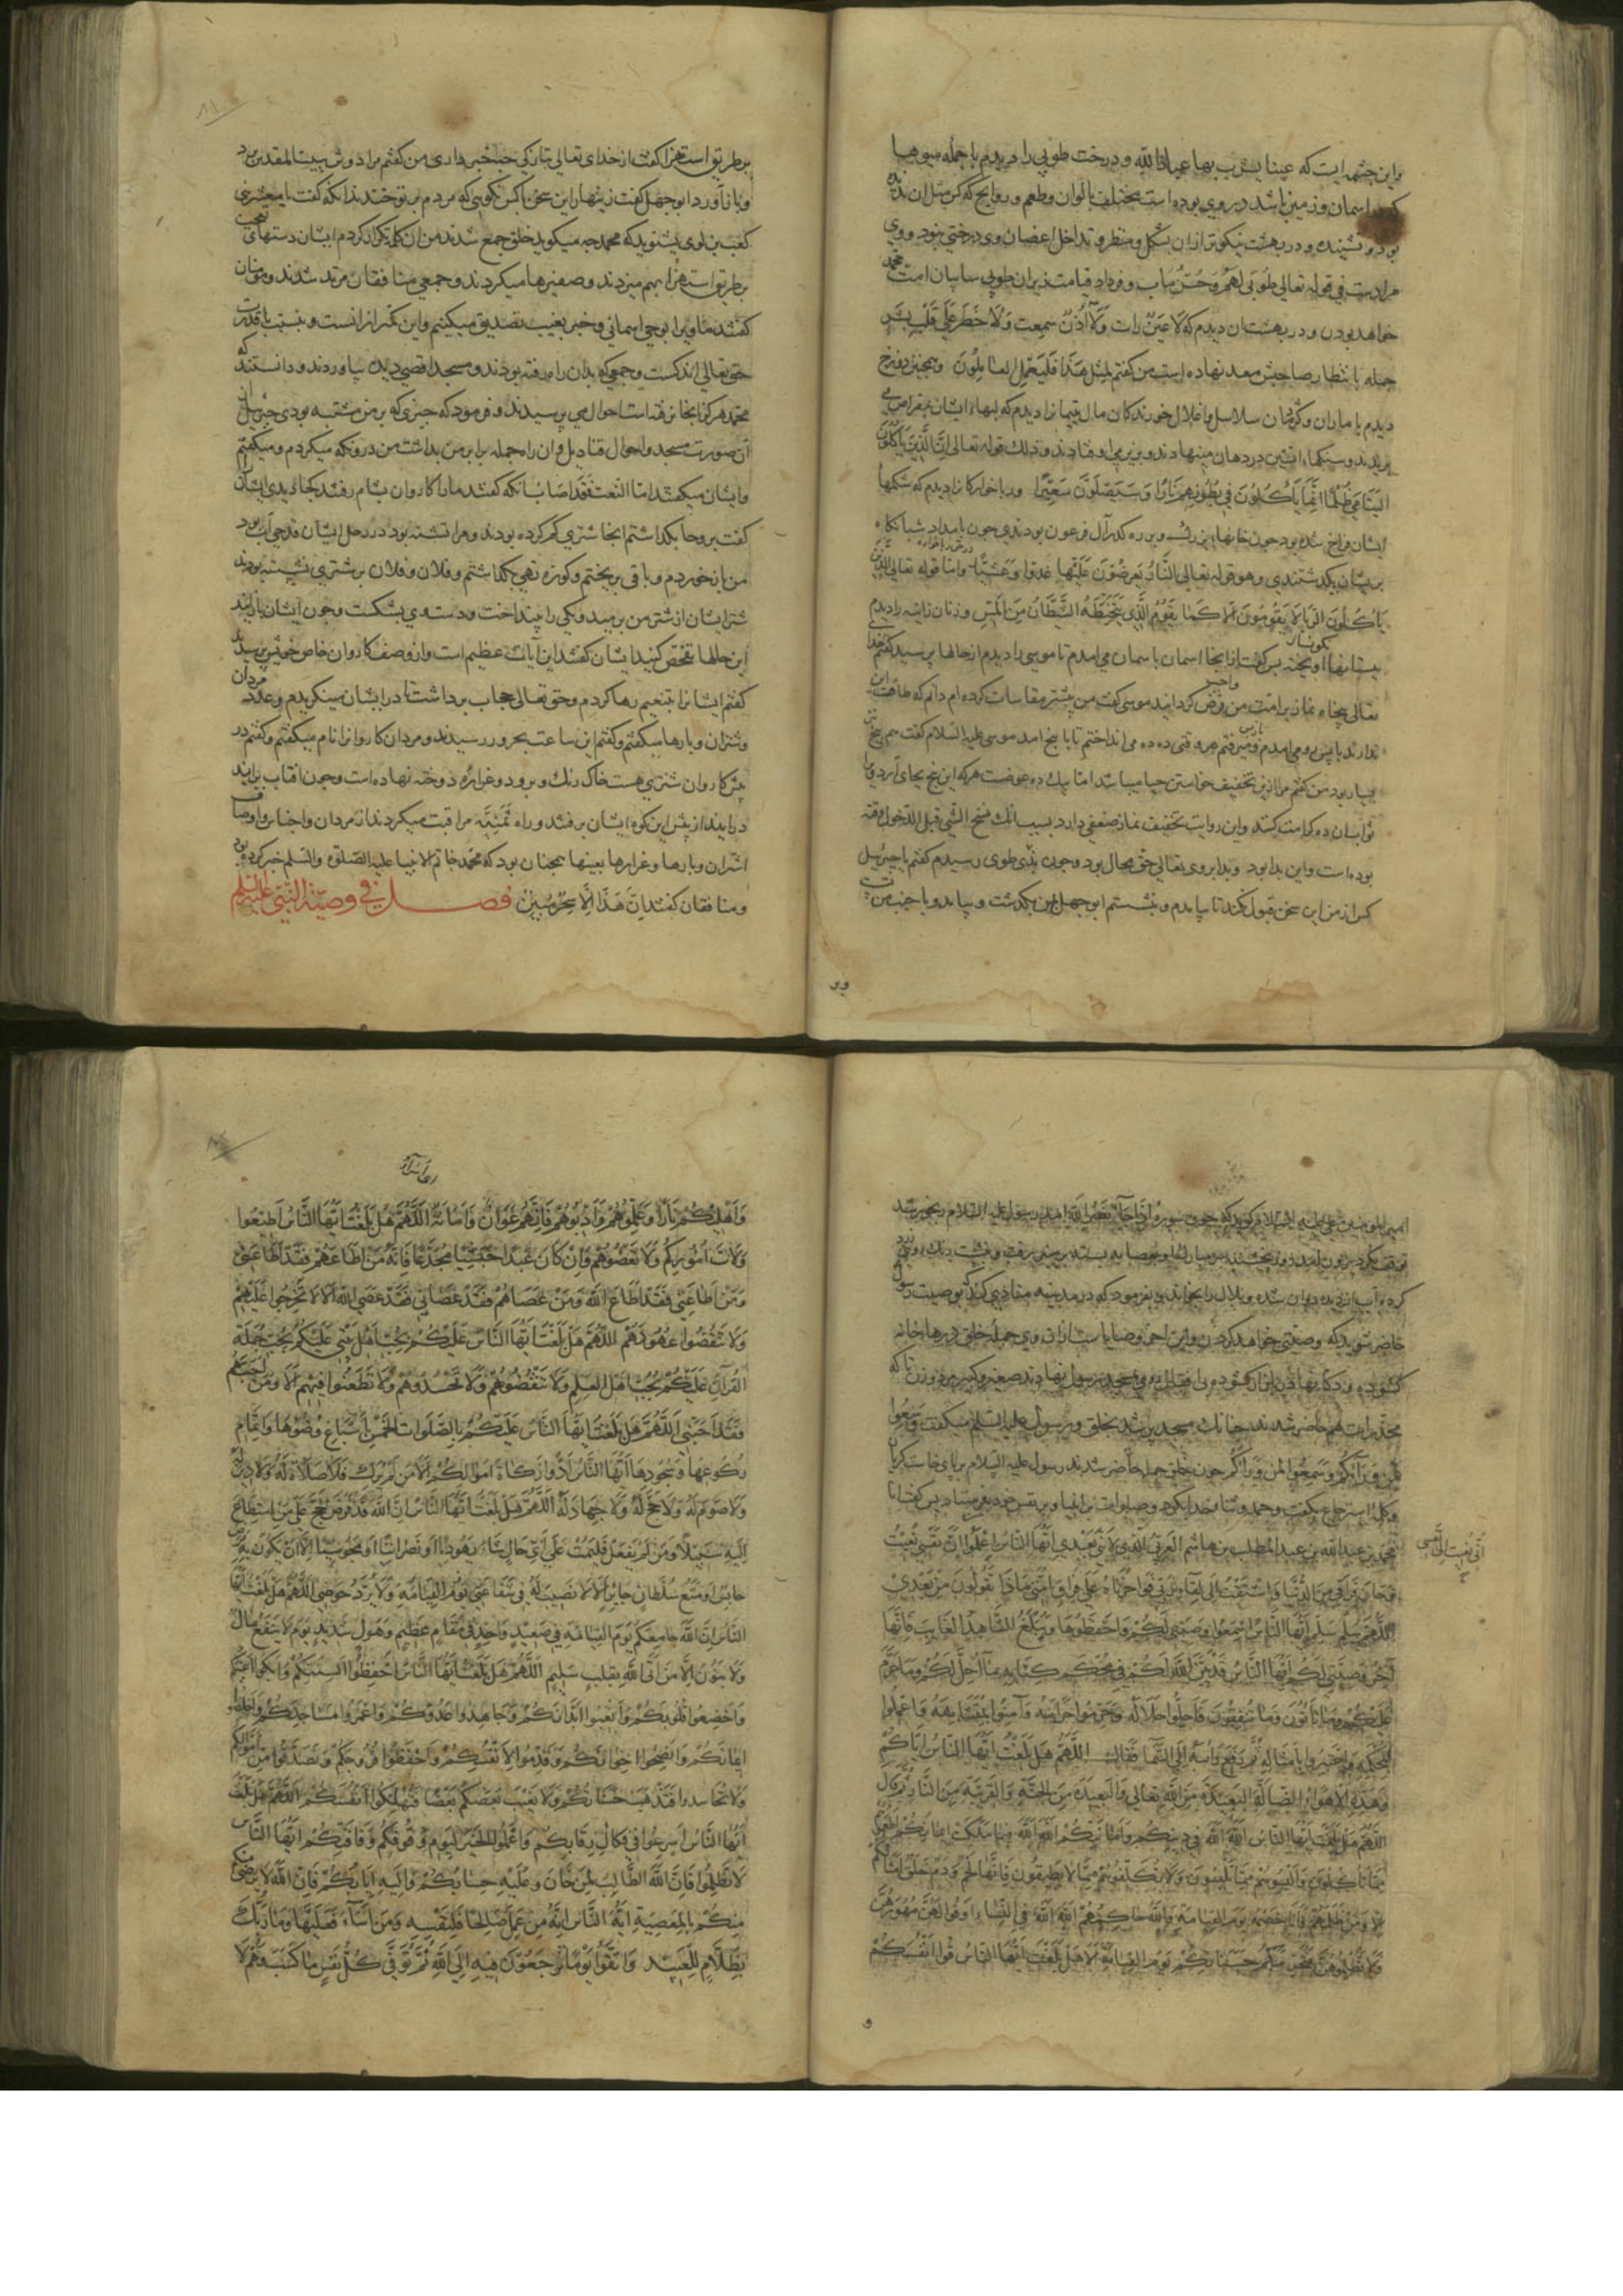 واین چشمه ایست که عینا یشرب بها عباد الله و درخت طوبی را دیدم با جمله میوهها
اسمان و زمین باشد در وی بوده است مختلف بالوان و طعم و روایح که کس مثل ان
بود و نشنیده و در بهشت نیکوتر از ان بشکل و منظر و تداخل اغصان وی درختی نبود و وی
مرادست فی قوله تعالی طُوبَی لَهُمْ وَحُسْنُ مَآبٍ و فردا و قیامت در زیر ان طوبی سایبان امت محمد
خواهد بودن و در بهشت ان دیدم که لَا عَیْنٌ رَأت وَلَا أُذُنٌ سَمِعت وَلَا خَطَرَ عَلَی قَلْبِ بَشَرٍ
جمله بانتظار صاحبش معد نهاده است من کفتم لِمِثْلِ هَذَا فَلْیَعْمَلِ العَامِلُونَ و همچنین دوزخ
دیدم با ماران و کژدمان سلاسل و اغلال خورندکان مال یتیمانرا دیدم که لبهاء ایشان بمقراض می
بریدند و سنکهاء اتشین در دهان مینهادند و بزیر می افتادند و ذلک قوله تعالی إِنَّ الَّذِینَ یَأْکُلُونَ أَمْوَالَ
الیَتَامَی ظُلْمًا إِنَّمَا یَأْکُلُونَ فِی بُطُونِهِمْ نَارًا وَسَیَصْلَوْنَ سَعِیرًا و ربا خوارکانرا دیدم که شکمها
ایشان فراخ شده بود چون خانهاء بزرک و بر ره کذر آل فرعون بودندی چون بامداد شبانکاه
بریشان بکذشتندی و هو قوله تعالی النَّارُ یُعْرَضُونَ عَلَیْهَا غُدُوًّا وَعَشِیًّا و اما قوله تعالی الَّذِینَ
یَأْکُلُونَ الرِّبَا لَا یَقُومُونَ إِلَّا کَمَا یَقُومُ الَّذِی یَتَخَبَّطُهُ الشَّیْطَانُ مِنَ المَسِّ و زنان زانیه را دیدم
بپستانها اویخته پس کفت از اینجا اسمان باسمان می امدم تا موسی را دیدم از حالها پرسید کفتم خدای
تعالی پنجاه نماز بر امت من فرض کردانید موسی کفت من پیشتر مقاسات کرده ام دانم که طاقت این
ندارند باپس رو می امدم و میرفتم هر وقتی ده ده می انداختم تا با پنج امد موسی علیه السلام کفت هم پنج
بسیار بود من کفتم مرا ازین تخفیف خواستن حیا میباشد اما یک ده عوضست هر که این پنج بجای آرد ویرا
ثواب ان ده کرامت کنند و این روایت تخفیف نماز ضعفی دارد بسبب انک نسخ الشی قبل الدخول وقته
بوده است و این بدا بود و بدا بر وی تعالی حق محال بود و چون بذی طوی رسیدم کفتم یا جبرییل
کس از من این سخن قبول نکند تا بیامدم و بنشستم ابو جهل بر من بکذشت و بیامد و با جنب من
بر طریق استهزا کفت از خدای تعالی بتازکی چه خبر داری من کفتم مرا دوش ببیت المقدس برد
و باز آورد ابو جهل کفت زینهار این سخن باکس نکویی که مردم بر تو خندند انکه کفت یا معشر بنی
کعب بن لوی بشنوید که محمد چه میکوید خلق جمع شدند من ان کلمه تکرار کردم ایشان دستهای
بر طریق استهزا بهم میزدند و صفیرها میکردند و جمعی منافقان مرتد شدند و مومنان
کفتند ما ویرا بوحی اسمانی و خبر بغیب تصدیق میکنیم و این کمتر از انست و نسبت باقدرت
حق تعالی اندکست و جمعی که بدان راه رفته بودند و مسجد اقصی دیده بیاوردند و دانستند که
محمد هرکز انجا نرفته است احوال می پرسیدند و فرمود که چیزی که بر من مشتبه بودی جبرییل
آن صورت مسجد و احوال قنادیل و ان راه جمله برابر من بداشت من درو نکه میکردم و میکفتم
و ایشان میکفتند اما النعت فقد اصاب انکه کفتند ما را کاروان بشام رفتند کجا دیدی ایشانرا
کفت بروحا بکذاشتم انجا شتری کم کرده بودند و مرا تشنه بود در رحل ایشان قدحی آب بود
من باز خوردم و باقی بریختم و کوزه تهی بکذاشتم و فلان و فلان بر شتری نشسته بودند
شتر ایشان از شتر من برمید و یکی را بینداخت و دست وی بشکست و چون ایشان بازآیند
این حالها تفحص کنید ایشان کفتند این آیات عظیم است و از وصف کاروان خاص خویش پرسیدند
کفتم ایشانرا بتنعیم رها کردم و حق تعالی حجاب برداشت تا در ایشان مینکریدم و عدد مردان
و شتران و بارها میکفتم و کفتم این ساعت بحرور رسیدند و مردان کاروانرا نام میکفتم و کفتم در
پیش کاروان شتری هست خاک رنک و برو دو غراره دوخته نهاده است و چون افتاب براید
درایند از پس این کوه ایشان برفتند و راه ثَنِیَّه مراقبت میکردند از مردان و اجناس و اوصاف
اشتران و بارها و غرارها بعینها همچنان بود که محمد خاتم الانبیا علیه الصلوة والسلم خبر کرده بود
و منافقان کفتند إِنْ هَذَا إِلَّا سِحْرٌ مُبِینٌ فصل فی وصیة النبی علیه السلم
امیرالمومنین علی علیه السلام کوید که چون سوره إِذَا جَاءَ نَصْرُ اللَّهِ امد رسول علیه السلام رنجور شد
کرده آب از دیده روان شده و بلال را بخواند و بفرمود که در مدینه منادی کند که بوصیت رسول
حاضر شوید که وصیتی خواهد کردن و این اخر وصایاست از ان وی جمله خلق درها خانه
کشوده و دکانها در باز کشوده روی بمسجد رسول نهادند صغیر و کبیر مرد و زن تا که
مخدرات هم حاضر شدند چنانک مسجد پر شد بخلق و رسول علیه السلم میکفت وَسِّعُوا
لِمَنْ وَرَاءَکُمْ وَسِّعُوا لِمَنْ وَرَاءَکُمْ چون خلق جمله حاضر شدند رسول علیه السلام بر پای خاست کریان
و کلمه استرجاع بکفت و حمد و ثنا خدا بکرد و صلوات بر انبیا و بر نفس خود بفرستاد پس کفت انا
محمد بن عبد الله بن عبد المطلب بن هاشم العربی الَّذِی لَا نَبِیَّ بَعْدِی أَیُّهَا النَّاسُ اعْلَمُوا أَنَّ نَفْسِی نُعِیَتْ
إِنِّی نُعِیَت إِلَیَّ نَفْسِی
اللَّهُمَّ سَلِّمْ سَلِّمْ أَیُّهَا النَّاسُ اسْمَعُوا وَصِیَّتِی لَکُمْ وَاحْفَظُوهَا وَلْیُبَلِّغِ الشَّاهِدُ الغَایِبَ فَإِنَّهَا
آخِرُ وَصِیَّتِی لَکُمْ أَیُّهَا النَّاسُ قَدْ بَیَّنَ اللَّهُ لَکُمْ فِی مُحْکَمِ کِتَابِهِ مَا أَحَلَّ لَکُمْ وَمَا حَرَّمَ
عَلَیْکُمْ وَمَا تَأْتُونَ وَمَا تُنْفِقُونَ فَأَحِلُّوا حَلَالَهُ وَحَرِّمُوا حَرَامَهُ وَآمِنُوا بِمُتَشَابِهِهِ وَاعْمَلُوا
بِمُحْکَمِهِ وَاعْتَبِرُوا بِأَمْثَالِهِ ثُمَّ رَفَعَ رَأْسَهُ إِلَی السَّمَاءِ فَقَالَ اللَّهُمَّ هَلْ بَلَّغْتُ أَیُّهَا النَّاسُ إِیَّاکُمْ
وَهَذِهِ الأَهْوَاءَ الضَّالَّةَ البَعِیدَةَ مِنَ اللَّهِ تَعَالَی وَالبَعِیدَةَ مِنَ الجَنَّةِ وَالقَرِیبَةَ مِنَ النَّارِ ثُمَّ قَالَ
اللَّهُمَّ هَلْ بَلَّغْتُ أَیُّهَا النَّاسُ اللَّهَ اللَّهَ فِی دِینِکُمْ وَأَمَانَتِکُمْ اللَّهَ اللَّهَ فِیمَا مَلَکَتْ أَیْمَانُکُمْ أَطْعِمُوهُمْ
مِمَّا تَأْکُلُونَ وَأَلْبِسُوهُمْ مِمَّا تَلْبِسُونَ وَلَا تُکَلِّفُوهُمْ مِمَّا لَا یُطِیقُونَ فَإِنَّهَا لَحْمٌ وَدَمٌ وَخَلْقٌ أَمْثَالُکُمْ
وَمَنْ ظَلَمَهُمْ فَأَنَا خَصْمُهُ یَوْمَ القِیَامَةِ وَاللَّهُ حَاکِمُهُمْ اللَّهَ اللَّهَ فِی النِّسَاءِ أَوْفُوا لَهُنَّ مُهُورَهُنَّ
وَلَا تَظْلِمُوهُنَّ حَسَنَاتِکُمْ یَوْمَ القِیَامَةِ أَلَا هَلْ بَلَّغْتُ أَیُّهَا النَّاسُ قُوا أَنْفُسَکُمْ
وَأَهْلِیکُمْ نَارًا وَعَلِّمُوهُمْ وَأَدِّبُوهُمْ فَإِنَّهُمْ عَوَانٌ وَأَمَانَةٌ اللَّهُمَّ هَلْ بَلَّغْتُ أَیُّهَا النَّاسُ أَطِیعُوا
وُلَاةَ أُمُورِکُمْ وَلَا تَعْصُوهُمْ وَإِنْ کَانَ عَبْدًا حَبَشِیًّا مُجَدَّعًا فَإِنَّهُ مَنْ أَطَاعَهُمْ فَقَدْ أَطَاعَنِی
وَمَنْ أَطَاعَنِی فَقَدْ أَطَاعَ اللَّهَ وَمَنْ عَصَاهُمْ فَقَدْ عَصَانِی وَمَنْ عَصَانِی فَقَدْ عَصَی اللَّهَ أَلَا لَا تَخْرُجُوا عَلَیْهِمْ
وَلَا تَنْقُضُوا عُهُودَهُمْ اللَّهُمَّ هَلْ بَلَّغْتُ أَیُّهَا النَّاسُ عَلَیْکُمْ بِحُبِّ أَهْلِ بَیْتِی عَلَیْکُمْ بِحُبِّ حَمَلَةِ
القُرْآنِ عَلَیْکُمْ بِحُبِّ أَهْلِ العِلْمِ وَلَا تُبْغِضُوهُمْ وَلَا تَحْسُدُوهُمْ وَلَا تَطْعَنُوا فِیهِمْ أَلَا وَمَنْ أَحَبَّهُمْ
فَقَدْ أَحَبَّنِی اللَّهُمَّ هَلْ بَلَّغْتُ أَیُّهَا النَّاسُ عَلَیْکُمْ بِالصَّلَوَاتِ الخَمْسِ بِإِسْبَاغِ وُضُوئِهَا وَإِتْمَامِ
رُکُوعِهَا وَسُجُودِهَا أَیُّهَا النَّاسُ أَدُّوا زَکَاةَ أَمْوَالِکُمْ أَلَا مَنْ لَمْ یُزَکِّ فَلَا صَلَاةَ لَهُ وَلَا دِینَ لَهُ
وَلَا صَوْمَ لَهُ وَلَا حَجَّ لَهُ وَلَا جِهَادَ لَهُ اللَّهُمَّ هَلْ بَلَّغْتُ أَیُّهَا النَّاسُ إِنَّ اللَّهَ قَدْ فَرَضَ الحَجَّ عَلَی مَنِ اسْتَطَاعَ
إِلَیْهِ سَبِیلًا وَمَنْ لَمْ یَفْعَلْ فَلْیَمُتْ عَلَی أَیِّ حَالٍ شَاءَ یَهُودِیًّا أَوْ نَصْرَانِیًّا أَوْ مَجُوسِیًّا إِلَّا أَنْ یَکُونَ بِهِ مَرَضٌ
حَابِسٌ أَوْ مَنْعُ سُلْطَانٍ جَایِرٍ أَلَا لَا نَصِیبَ لَهُ فِی شَفَاعَتِی یَوْمَ القِیَامَةِ وَلَا یَرِدُ حَوْضِی اللَّهُمَّ هَلْ بَلَّغْتُ أَیُّهَا
النَّاسُ إِنَّ اللَّهَ جَامِعُکُمْ یَوْمَ القِیَامَةِ فِی صَعِیدٍ وَاحِدٍ فِی مَقَامٍ عَظِیمٍ وَهَوْلٍ شَدِیدٍ یَوْمَ لَا یَنْفَعُ مَالٌ
وَلَا بَنُونَ إِلَّا مَنْ أَتَی اللَّهَ بِقَلْبٍ سَلِیمٍ اللَّهُمَّ هَلْ بَلَّغْتُ أَیُّهَا النَّاسُ احْفَظُوا أَلْسِنَتَکُمْ وَأَبْکُوا أَعْیُنَکُمْ
وَأَخْضِعُوا قُلُوبَکُمْ وَأَتْعِبُوا أَبْدَانَکُمْ وَجَاهِدُوا عَدُوَّکُمْ وَاعْمُرُوا مَسَاجِدَکُمْ وَأَخْلِصُوا
إِیمَانَکُمْ وَانْصَحُوا إِخْوَانَکُمْ وَقَدِّمُوا لِأَنْفُسِکُمْ وَاحْفَظُوا فُرُوجَکُمْ وَتَصَدَّقُوا مِنْ أَمْوَالِکُمْ
وَلَا تَحَاسَدُوا فَتَذْهَبَ حَسَنَاتُکُمْ وَلَا یَغْتَبْ بَعْضُکُمْ بَعْضًا فَتُهْلِکُوا أَنْفُسَکُمْ اللَّهُمَّ هَلْ بَلَّغْتُ
أَیُّهَا النَّاسُ اسْعَوْا فِی فَکَاکِ رِقَابِکُمْ وَاعْمَلُوا الخَیْرَ لِیَوْمِ فَقْرِکُمْ وَفَاقَتِکُمْ أَیُّهَا النَّاسُ
لَا تَظْلِمُوا فَإِنَّ اللَّهَ الطَّالِبُ لِمَنْ خَانَ وَعَلَیْهِ حِسَابُکُمْ وَإِلَیْهِ إِیَابُکُمْ فَإِنَّ اللَّهَ لَا یَرْضَی مِنْکُمْ
مِنْکُمْ بِالمَعْصِیَةِ أَیُّهَا النَّاسُ إِنَّهُ مَنْ عَمِلَ صَالِحًا فَلِنَفْسِهِ وَمَنْ أَسَاءَ فَعَلَیْهَا وَمَا رَبُّکَ
بِظَلَّامٍ لِلْعَبِیدِ وَاتَّقُوا یَوْمًا تُرْجَعُونَ فِیهِ إِلَی اللَّهِ ثُمَّ تُوَفَّی کُلُّ نَفْسٍ مَا کَسَبَتْ وَهُمْ لَا